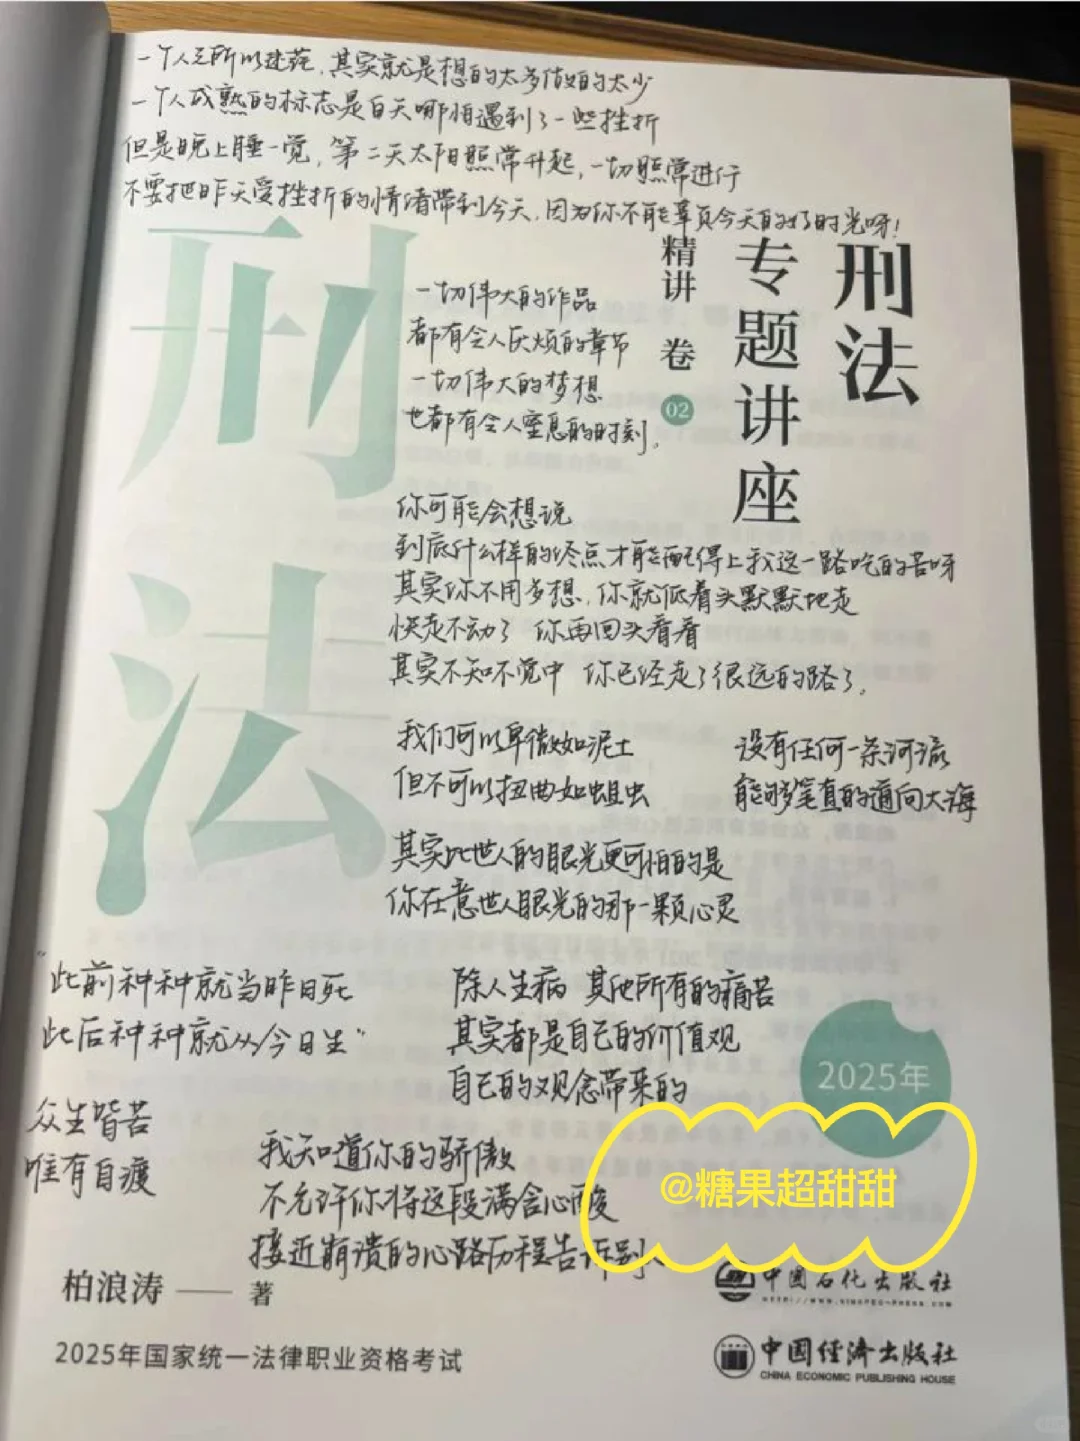 一个人之所以迷茫，其实就是想的太多做的太少
一个人成熟的标志是白天哪怕遇到了一些挫折
但是晚上睡一觉，第二天太阳照常升起，一切照常进行
不要把昨天受挫折的情绪带到今天，因为你不能辜负今天的好时光呀！
刑法
专题讲座
精讲 卷 02
刑法
一切伟大的作品
都有令人厌烦的章节
一切伟大的梦想
也都有令人窒息的时刻。
你可能会想说
到底什么样的终点才能配得上我这一路吃的苦呀
其实你不用多想，你就低着头默默地走
快走不动了 你再回头看看
其实不知不觉中 你已经走了很远的路了。
我们可以卑微如泥土
但不可以扭曲如蛆虫
没有任何一条河流
能够笔直的通向大海
其实比世人的眼光更可怕的是
你在意世人眼光的那一颗心灵
“此前种种就当昨日死
此后种种就从今日生”
除人生病 其他所有的痛苦
其实都是自己的价值观
自己的观念带来的
2025年
众生皆苦
唯有自渡
我知道你的骄傲
不允许你将这段满含心酸
接近崩溃的心路历程告诉别人
@糖果超甜甜
柏浪涛 —— 著
中国石化出版社
HTTP://WWW.SINOPEC-PRESS.COM
2025年国家统一法律职业资格考试
中国经济出版社
CHINA ECONOMIC PUBLISHING HOUSE